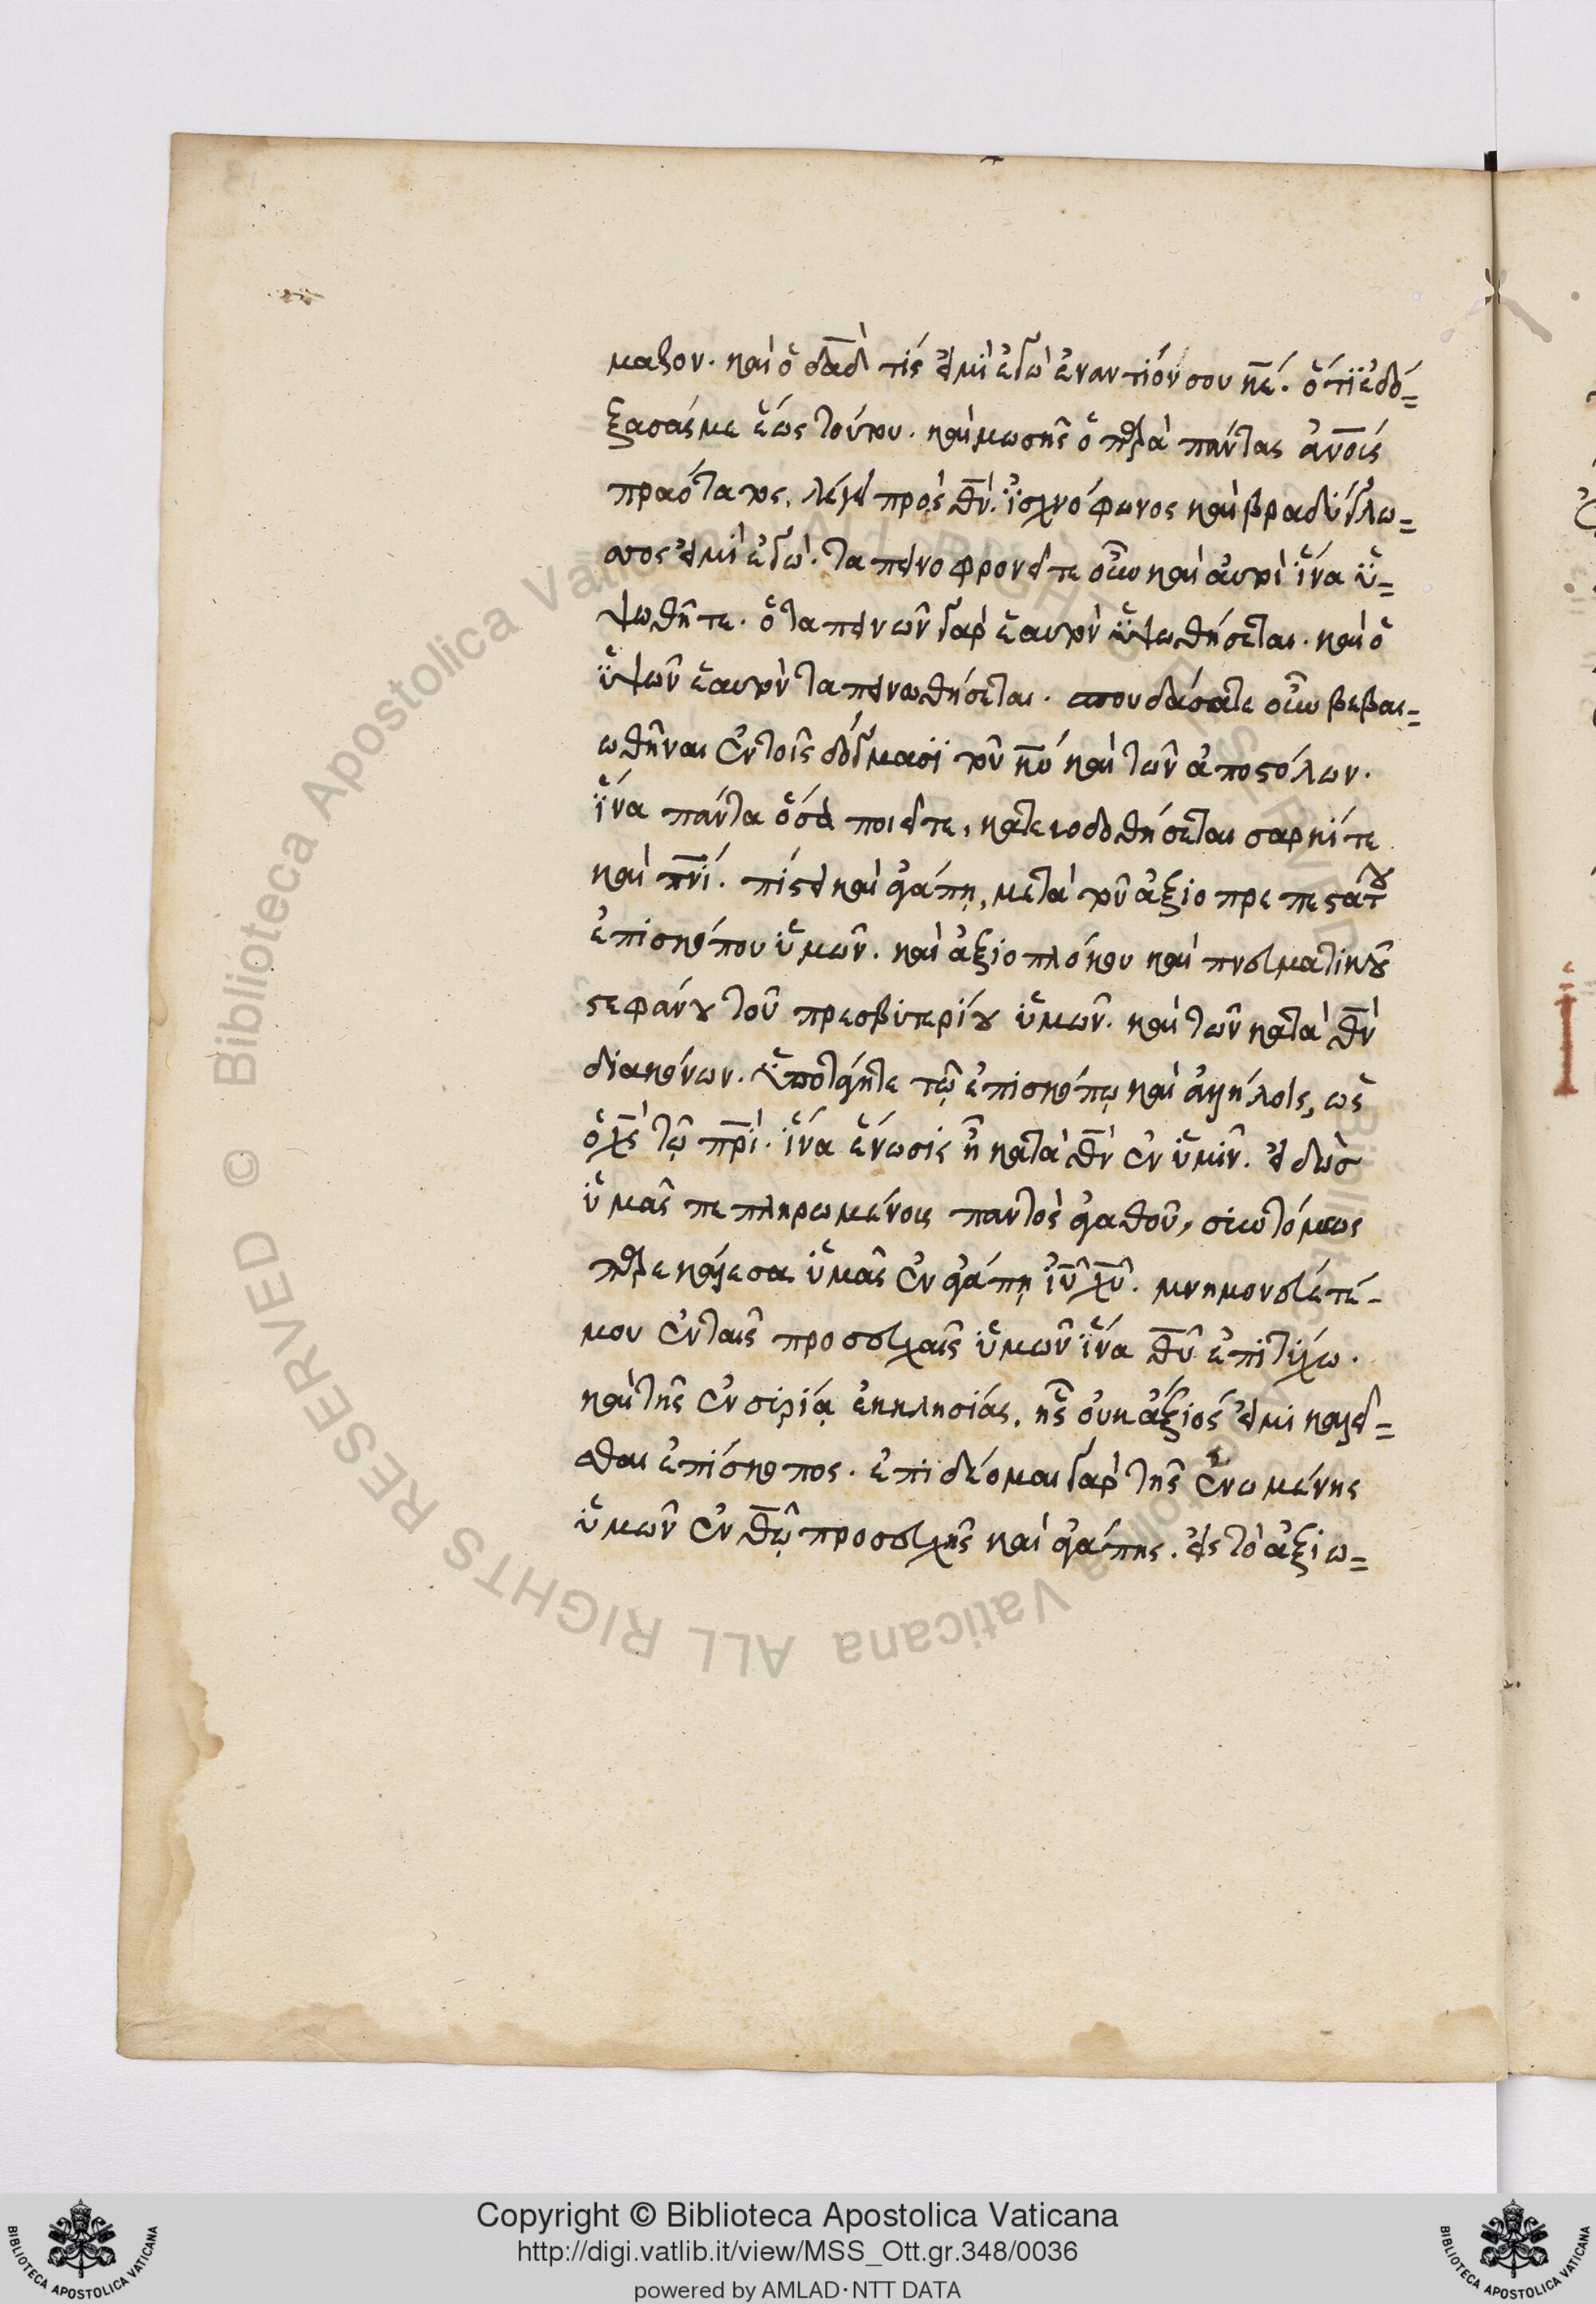 μαζον. καὶ ὁ δα̅δ̀ τίς εἰμὶ ἐγὼ ἐναντίόν σου κ̅ε̅́. ὅτι ἐδό=
ξασάς με ἕως τούτου. καὶ μωσῆς ὁ παρὰ πάντας ἀν̅οις
πραότατος, λέγει πρὸς θ̅ν̅̀. ἰσχνόφωνος καὶ βραδύγλω=
σσος εἰμὶ ἐγὼ. ταπεινοφρονεῖτε οὖν καὶ αὐτοὶ ἵνα ὑ=
ψωθῆτε. ὁ ταπεινῶν γὰρ ἑαυτὸν ὑψωθήσεται. καὶ ὁ
ὑψῶν ἑαυτὸν ταπεινωθήσεται. σπουδάσατε οὖν βεβαι=
ωθῆναι ἐν τοῖς δόγμασι τοῦ κ̅υ̅́ καὶ τῶν ἀποστόλων.
ἵνα πάντα ὅσα ποιεῖτε, κατευοδοθήσεται σαρκί τε
καὶ π̅ν̅ί. πίστει καὶ ἀγάπη, μετὰ τοῦ ἀξιοπρεπεστάτου
ἐπισκόπου ὑμῶν. καὶ ἀξιοπλόκου καὶ πνευματικοῦ
στεφάνου τοῦ πρεσβιτερίου ὑμῶν. καὶ τῶν κατὰ θ̅ν̅̀
διακόνων. ὑποτάγητε τῷ ἐπισκόπῳ καὶ ἀλλήλοις, ὡς
ὁ χ̅ς̅̀ τῷ π̅ρ̅ὶ. ἵνα ἕνωσις ἦ κατὰ θ̅ν̅̀ ἐν ὑμῖν. εἰδὼς
ὑμᾶς πεπληρωμένους παντὸς ἀγαθοῦ, σιωτόμως
παρεκάλεσα ὑμᾶς ἐν ἀγάπῃ ἰ̅υ̅͂ χ̅υ̅͂. μνημονεύετέ-
μου ἐν ταῖς προσευχαῖς ὑμῶν ἵνα θ̅υ̅͂ ἐπιτίχω.
καὶ τῆς ἐν σιρίᾳ ἐκκλησίας, ἧς οὐκ ἄξιός εἰμι καλεῖ=
σθαι ἐπίσκοπος. ἐπιδέομαι γὰρ τῆς ἑνωμένης
ὑμῶν ἐν θ̅ῷ̅ προσευχῆς καὶ ἀγάπης. εἰς τὸ ἀξιω=
Copyright © Biblioteca Apostolica Vaticana
http://digi.vatlib.it/view/MSS_Ott.gr.348/0036
powered by AMLAD·NTT DATA